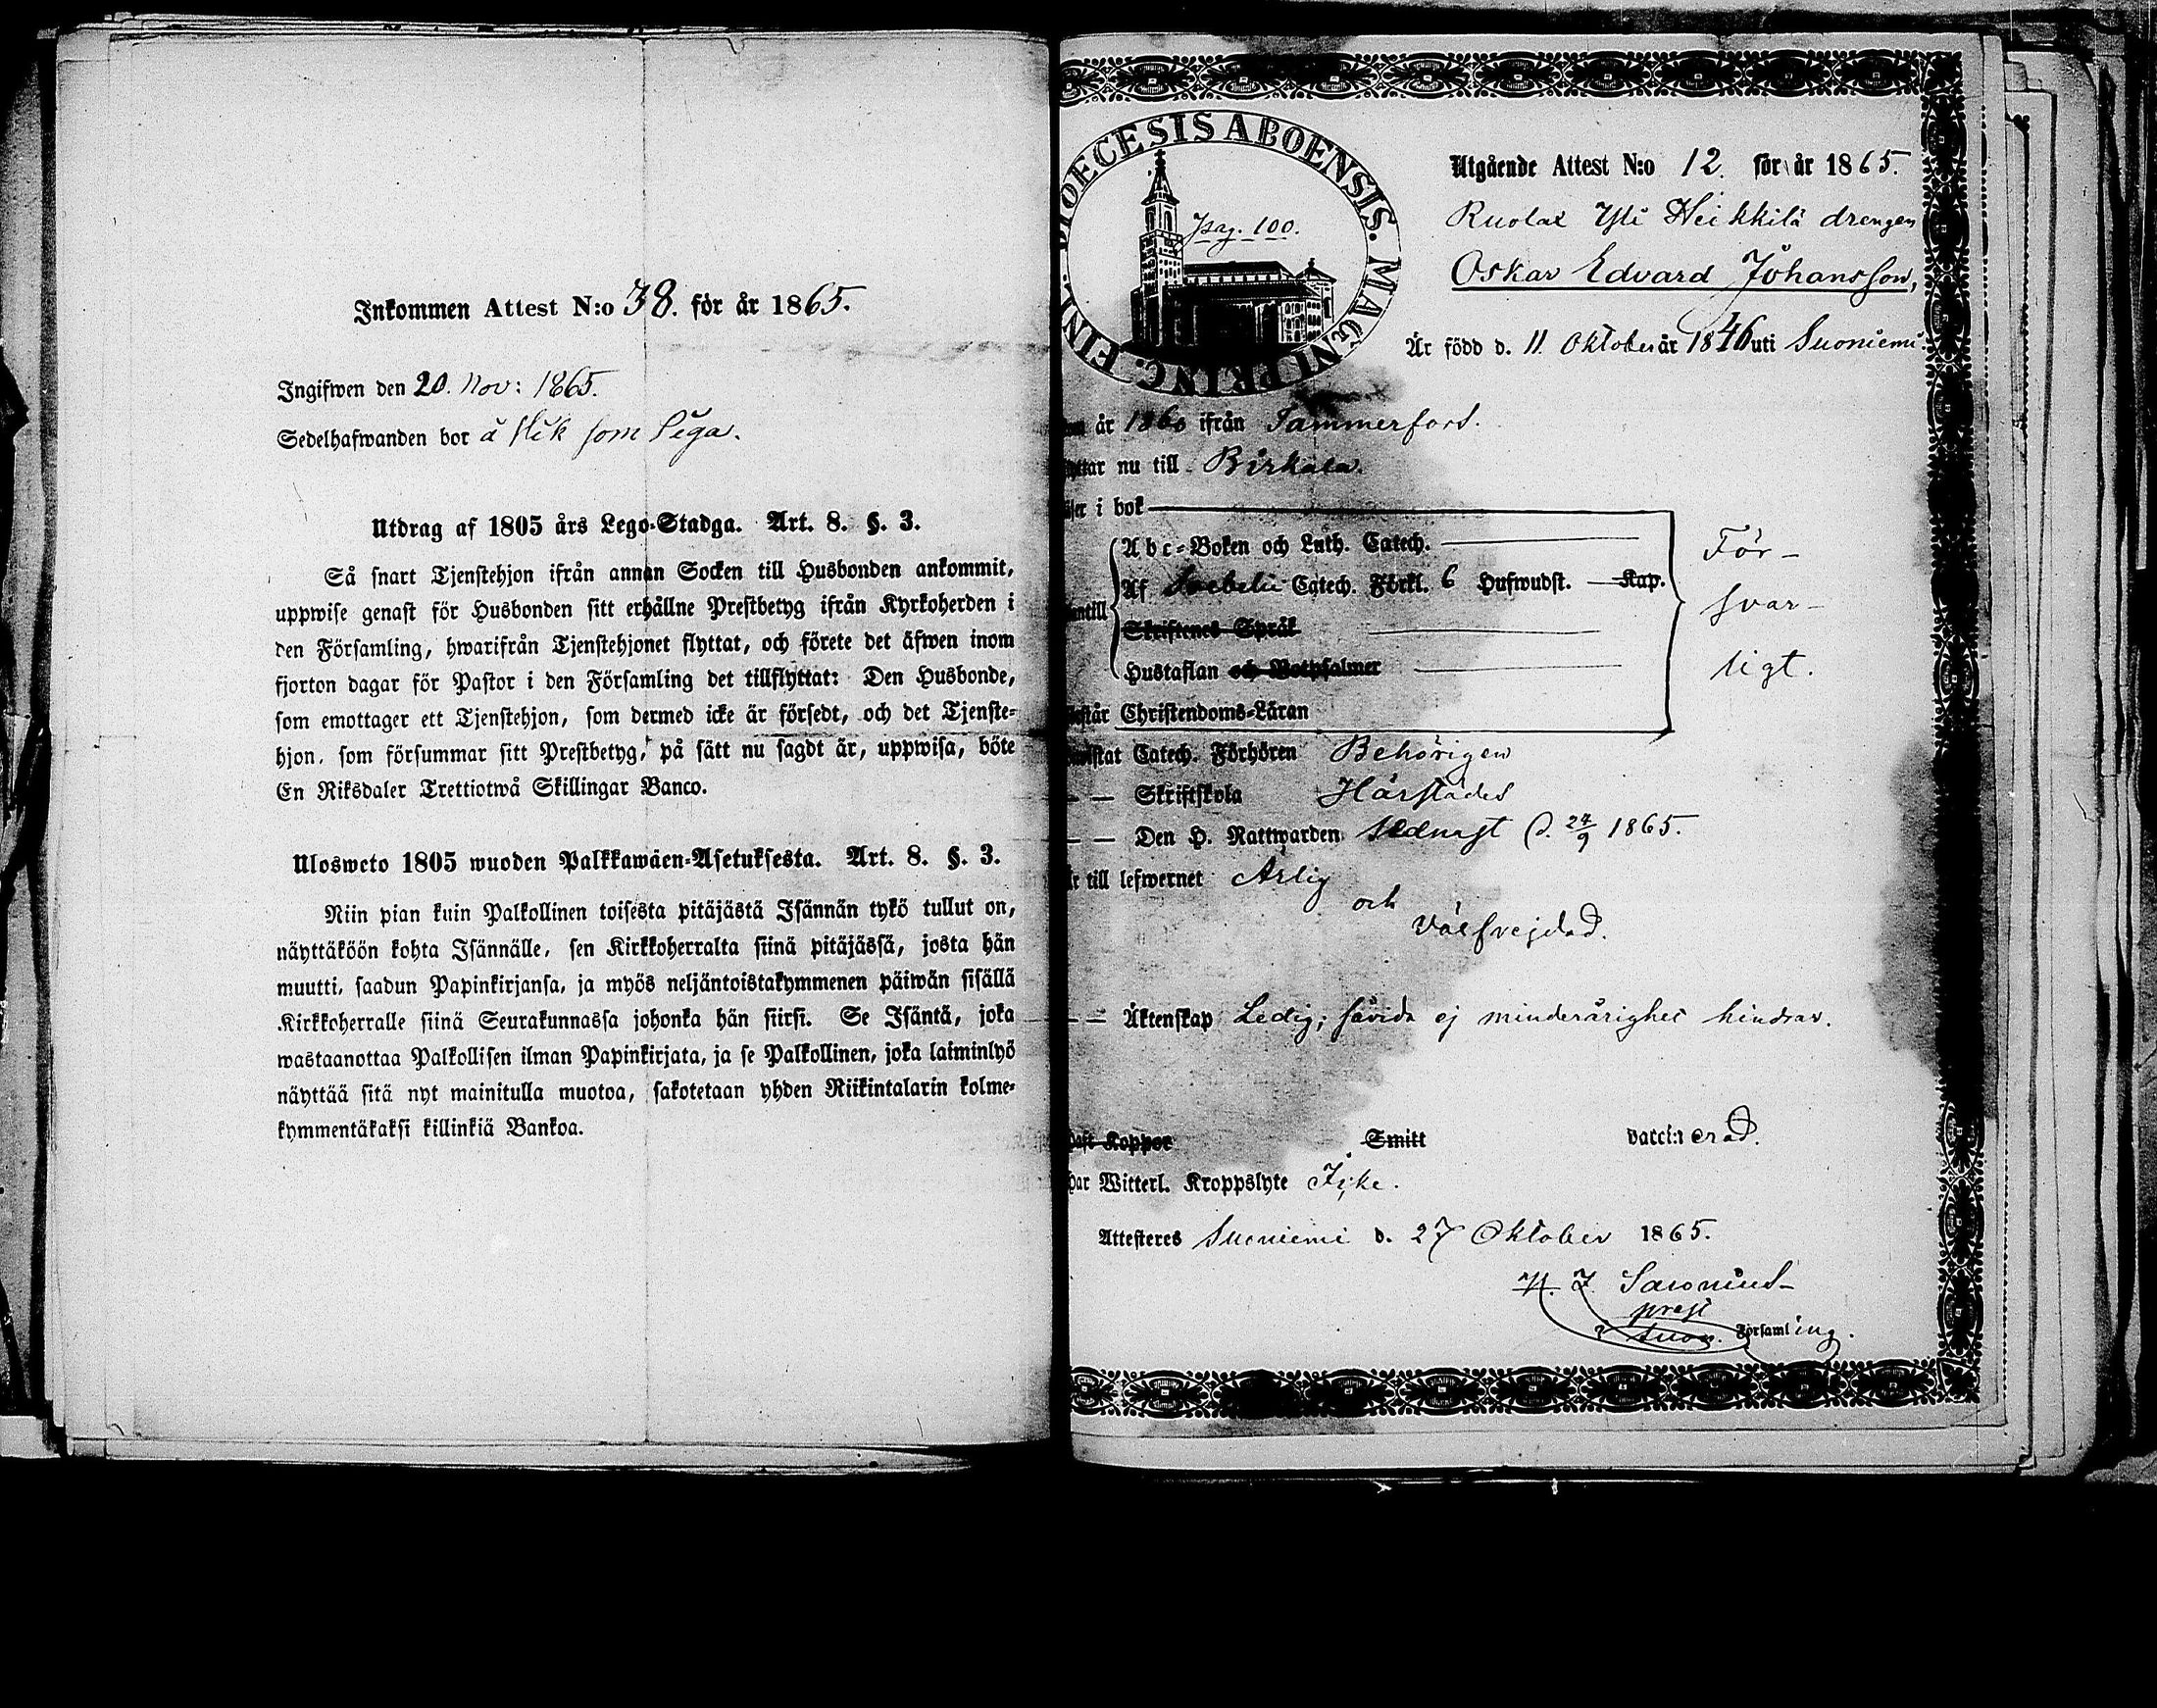 Inkommen Attest N:o 38. för år 1865.
Ingifwen den 20. Nov: 1865.
Sedelhafwanden bor å Slik som Piga.
Utdrag af 1805 års Lego-Stadga. Art. 8. §. 3.
Så snart Tjenstehjon ifrån annan Socken till Husbonden ankommit,
uppwise genast för Husbonden sitt erhållne Prestbetyg ifrån Kyrkoherden i
den Församling, hwarifrån Tjenstehjonet flyttat, och förete det äfwen inom
fjorton dagar för Pastor i den Församling det tillflyttat: Den Husbonde,
som emottager ett Tjenstehjon, som dermed icke är försedt, och det Tjenste-
hjon, som försummar sitt Prestbetyg, på sätt nu sagdt är, uppwisa, böte
En Riksdaler Trettiotwå Skillingar Banco.
Ulosweto 1805 wuoden Palkkawäen-Asetuksesta. Art. 8. §. 3.
Niin pian kuin Palkollinen toisesta pitäjästä Isännän tykö tullut on,
näyttäköön kohta Isännälle, sen Kirkkoherralta siinä pitäjässä, josta hän
muutti, saadun Papinkirjansa, ja myös neljäntoistakymmenen päiwän sisällä
Kirkkoherralle siinä Seurakunnassa johonka hän siirsi. Se Isäntä, joka
wastaanottaa Palkollisen ilman Papinkirjata, ja se Palkollinen, joka laiminlyö
näyttää sitä nyt mainitulla muotoa, sakotetaan yhden Riikintalarin kolme-
kymmentäkaksi killinkiä Bankoa.
DIOECESIS ABOENSIS. MAGNI PRINC. FINL.
Pag. 100.
Utgående Attest N:o 12. för år 1865.
Ruolax Yli Heikkilä drengen
Oskar Edvard Johansson,
Är född d. 11 Oktober år 1846 uti Suoniemi.
år 1860 ifrån Tammerfors.
nu till Birkala.
i bok
Abc-Boken och Luth. Catech.
Af Svebelii Catech. Förkl. 6 Hufwudst. Kap.
Skriftenes Språk
Hustaflan och Botpsalmer
Christendoms-Läran
För-
svar-
ligt.
Catech. Förhören Behörigen
— — Skriftskola Härstädes
— — Den H. Nattwarden sednast d. 24/9 1865.
till lefwernet Ärlig
och
välfrejdad.
— — Äktenskap Ledig; såvida ej minderårighet hindrar.
haft Koppor Smitt vaccinerad.
har Witterl. Kroppslyte Icke.
Attesteres Suoniemi d. 27 Oktober 1865.
prest
Församling.